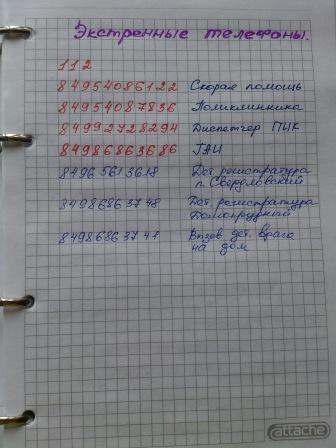 Экстренные телефоны.
112
84954086122 Скорая помощь
84954087836 Поликлинника
84992728294 Диспетчер ПИК
84986863686 ГАИ
84965613618 Дет. регистратура
п. Свердловский
84986863748 Дет. регистратура
84986863741 Вызов дет. врача
на дом
attache